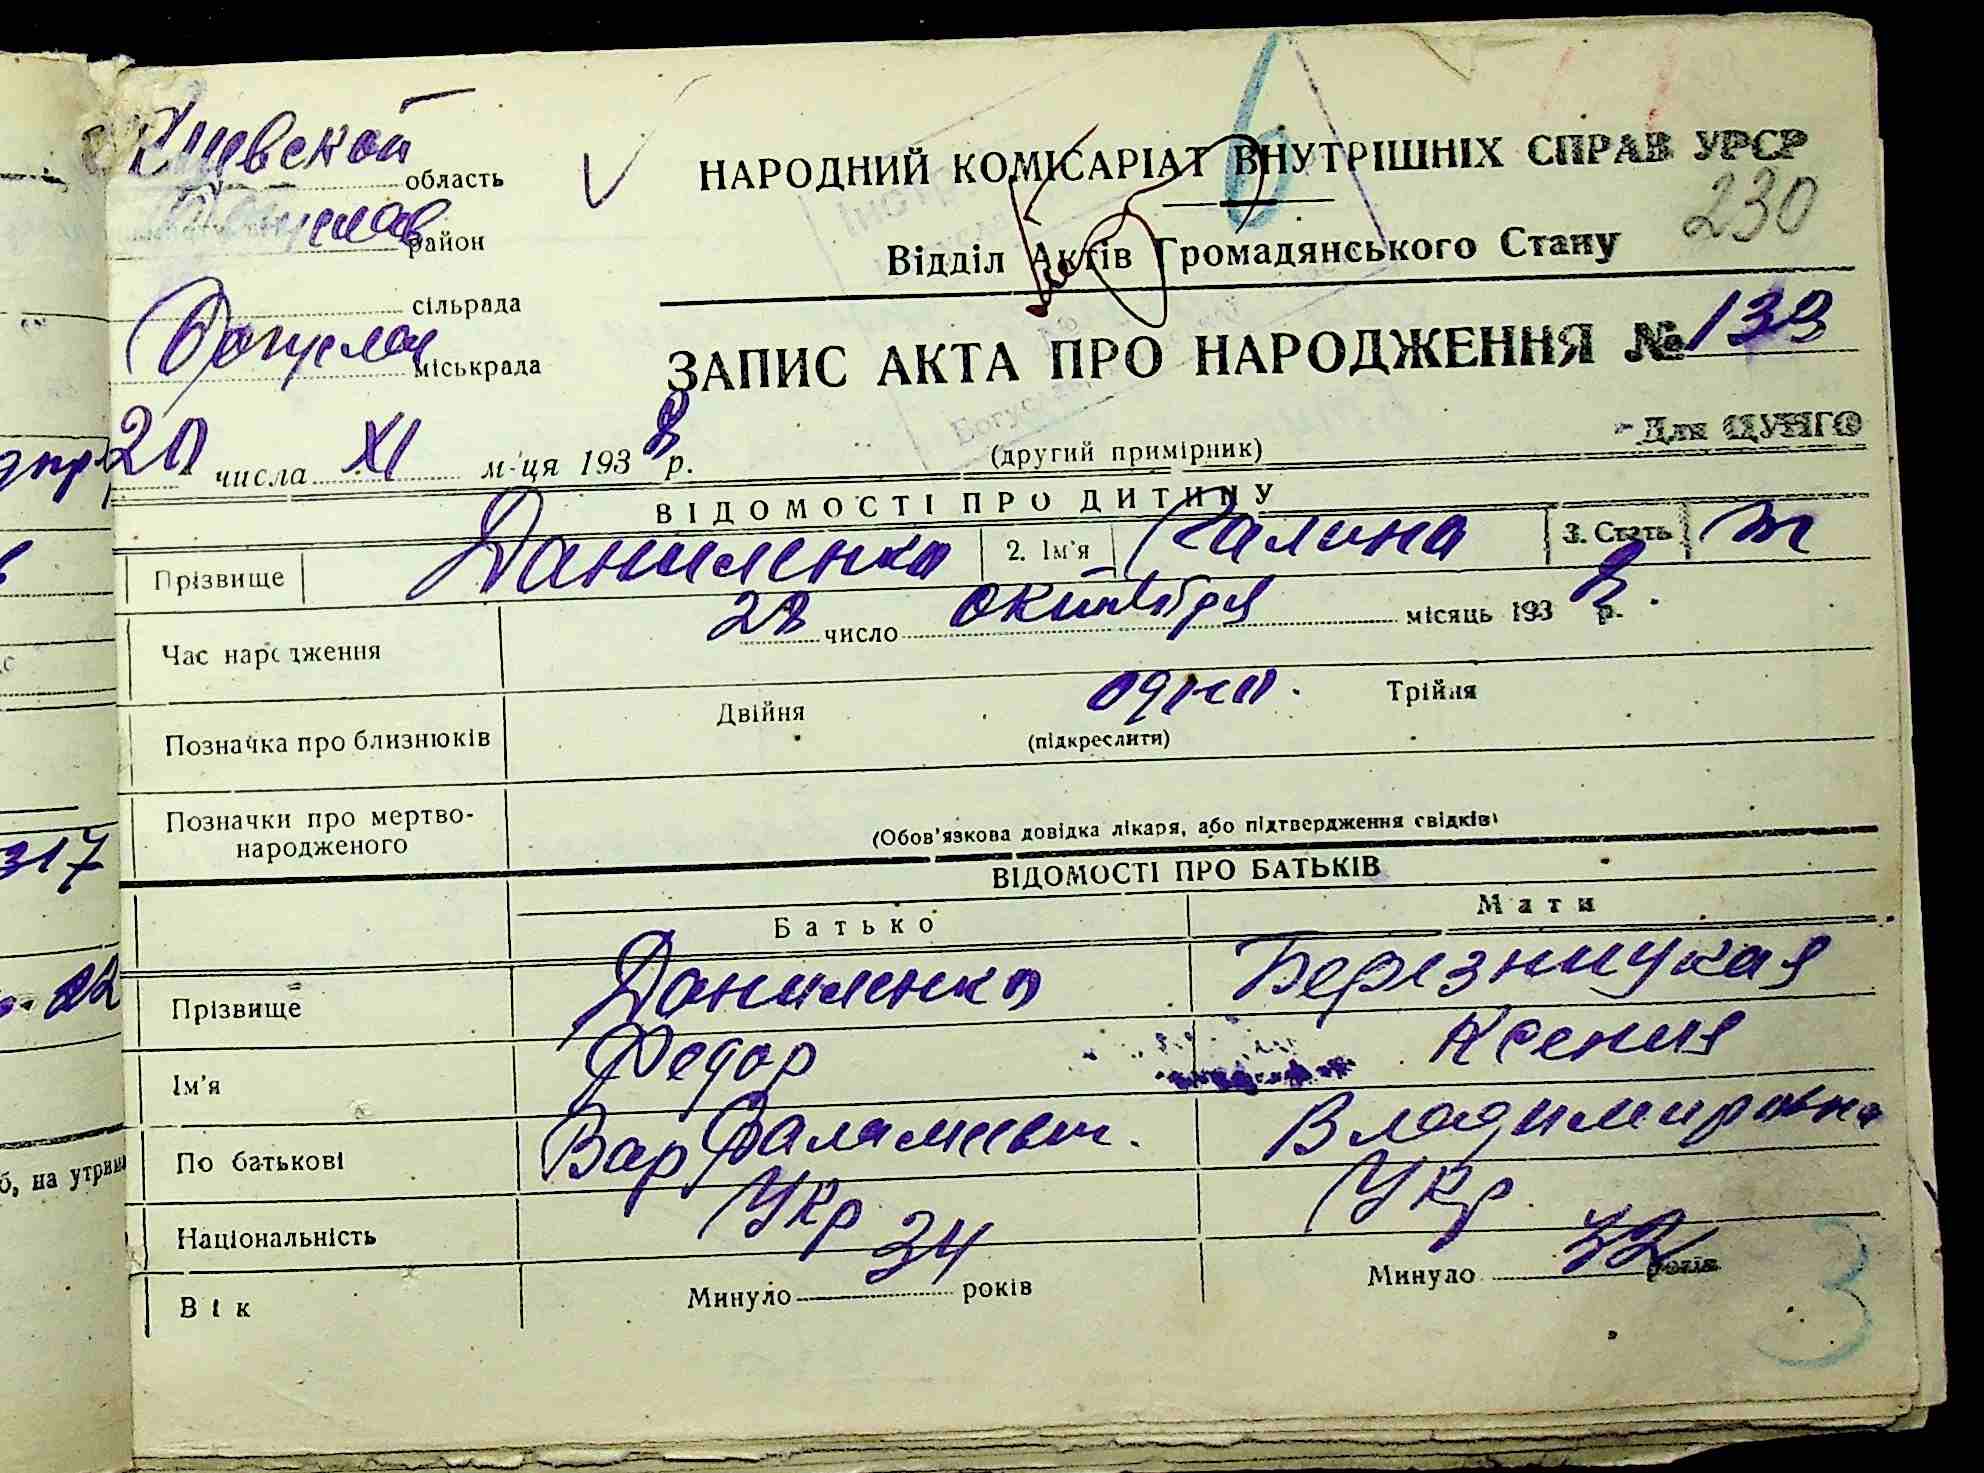 Киевской область
Богуслав район
сільрада
Богуслав міськрада
20 числа XI м-ця 1938 р.
НАРОДНИЙ КОМІСАРІАТ ВНУТРІШНІХ СПРАВ УРСР
6
230
Відділ Актів Громадянського Стану
ЗАПИС АКТА ПРО НАРОДЖЕННЯ № 139
Для ЦУНГО
(другий примірник)
ВІДОМОСТІ ПРО ДИТИНУ
Прізвище Даниленко 2. Ім'я Галина 3. Стать ж
Час народження 28 число октября місяць 1938 р.
Позначка про близнюків Двійня одно. Трійня
(підкреслити)
Позначки про мертво-
народженого
(Обов'язкова довідка лікаря, або підтвердження свідків)
ВІДОМОСТІ ПРО БАТЬКІВ
Батько Мати
Прізвище Даниленко Березницкая
Ім'я Федор Ксения
По батькові Варфаламеевич. Владимировна
Національність Укр Укр
Вік Минуло 34 років Минуло 32 років
3
317
б, на утрим